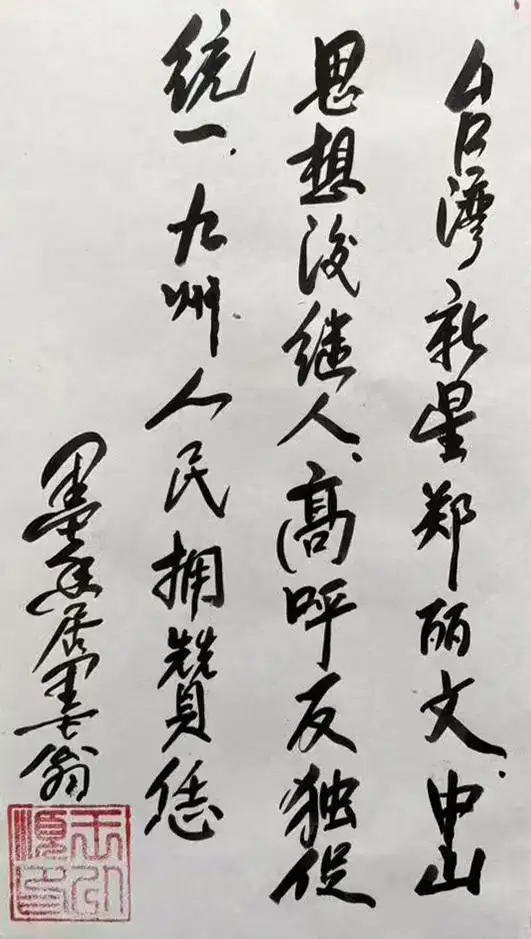 台湾新星郑丽文、中山
思想後继人、高呼反独促
统一、九州人民拥贊您
居墨翁